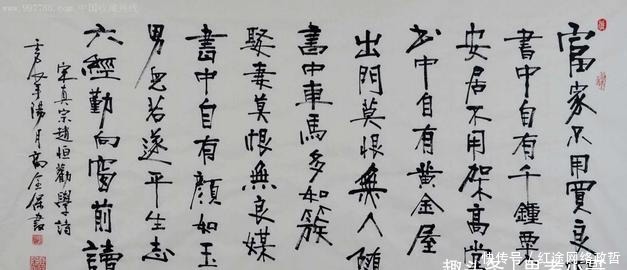 www.997788.com 中国收藏热线
富家不用買良
書中自有千鍾粟
安居不用架高堂
书中自有黃金屋
出門莫恨無人随
書中車馬多如簇
娶妻莫恨無良媒
書中自有顏如玉
男兒若遂平生志
六經勤向窗前讀
宋真宗趙恒勸學詩
年陽月高金書
搜狐号@红途网络政哲